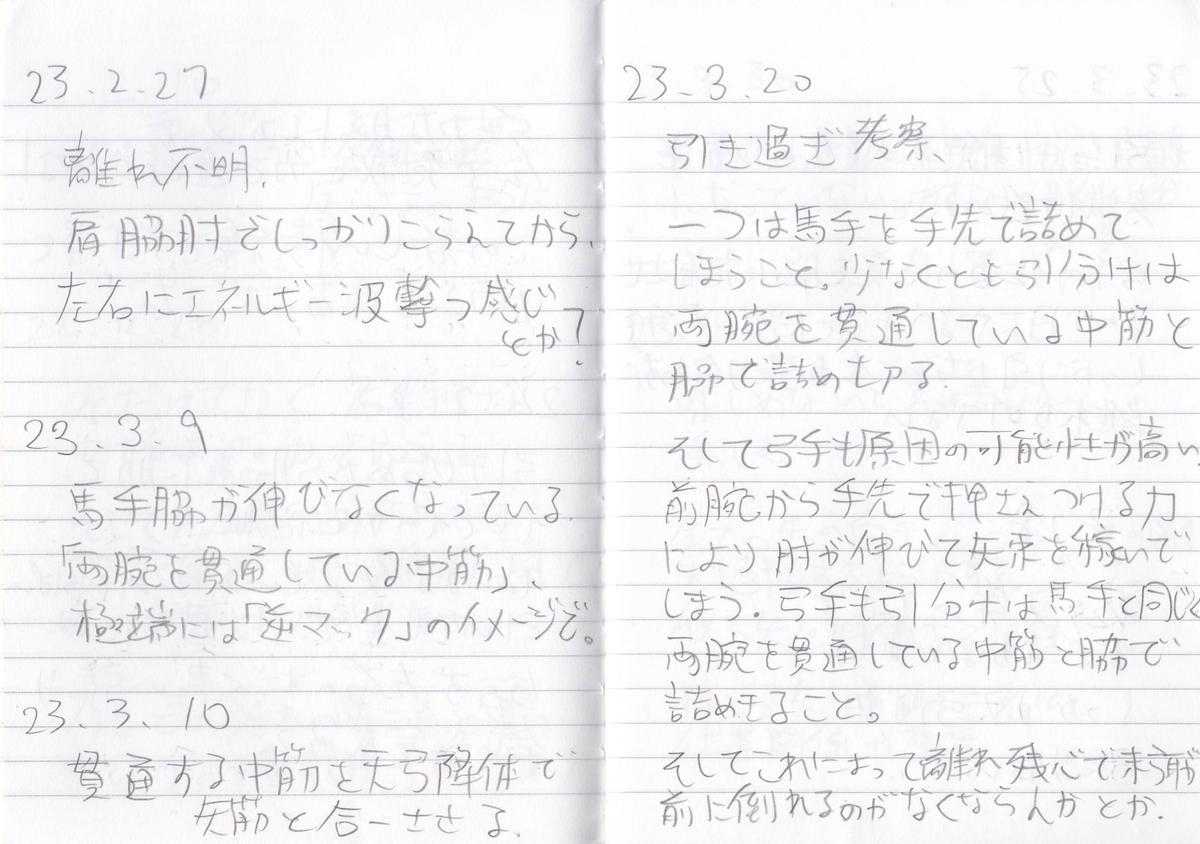 23.2.27
離れ不明.
肩脇肘でしっかりこらえてから、
左右にエネルギー波撃つ感じ
とか?
23.3.9
馬手脇が伸びなくなっている.
「両腕を貫通している中筋」、
極端には「逆マック」のイメージで。
23.3.10
貫通する中筋を大弓降体で
矢筋と合一させる.
23.3.20
引き過ぎ考察、
一つは馬手を手先で詰めて
しまうこと。少なくとも引分けは
両腕を貫通している中筋と
脇で詰めたる.
そして弓手も原因の可能性が高い
前腕から手先で押さえつける力
により肘が伸びて矢束を稼いで
しまう.弓手も引分けは馬手と同じく
両腕を貫通している中筋と脇で
詰めきること。
そしてこれによって離れ残心で
前に倒れるのがなくならんかとか.